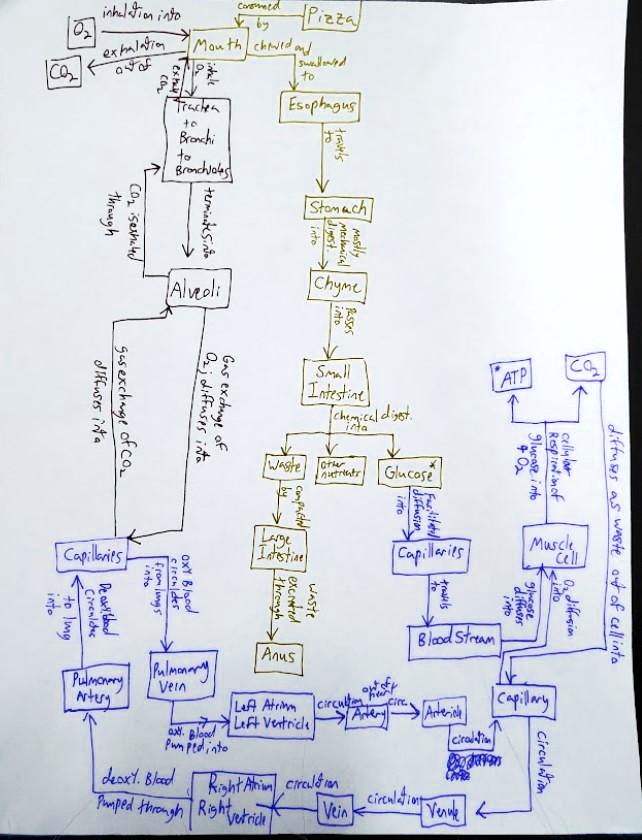 consumed
by
Pizza
O₂
inhalation into
exhalation
out of
CO₂
Mouth
chewed and
swallowed
to
inhale
O₂
exhale
CO₂
Trachea
to
Bronchi
to
Bronchioles
Esophagus
travels
to
terminates into
CO₂ is exhaled
through
Stomach
mostly
mechanical
digest.
into
Alveoli
Chyme
Passes
into
gas exchange of CO₂
diffuses into
Gas exchange of
O₂; diffuses into
Small
Intestine
chemical digest.
into
Waste
Other
nutrients
Glucose*
*ATP
CO₂
cellular
Respiration of
glucose into
& O₂
diffuses as waste out of cell into
compacted
by
Facilitated
diffusion
into
Large
Intestine
Capillaries
Muscle
Cell
waste
excreted
through
travels
to
glucose
diffuses
into
O₂ diffusion
into
Anus
Blood Stream
Capillaries
Deoxy. blood
Circulates
to lung
into
oxy. Blood
circulates
from lungs
into
Pulmonary
Artery
Pulmonary
Vein
oxy. Blood
pumped into
Left Atrium
Left Ventricle
circulation
out of
heart
Artery
circ.
Arteriole
circulation
Capillary
circulation
Venule
circulation
Vein
circulation
Right Atrium
Right
Ventricle
deoxy. Blood
Pumped through